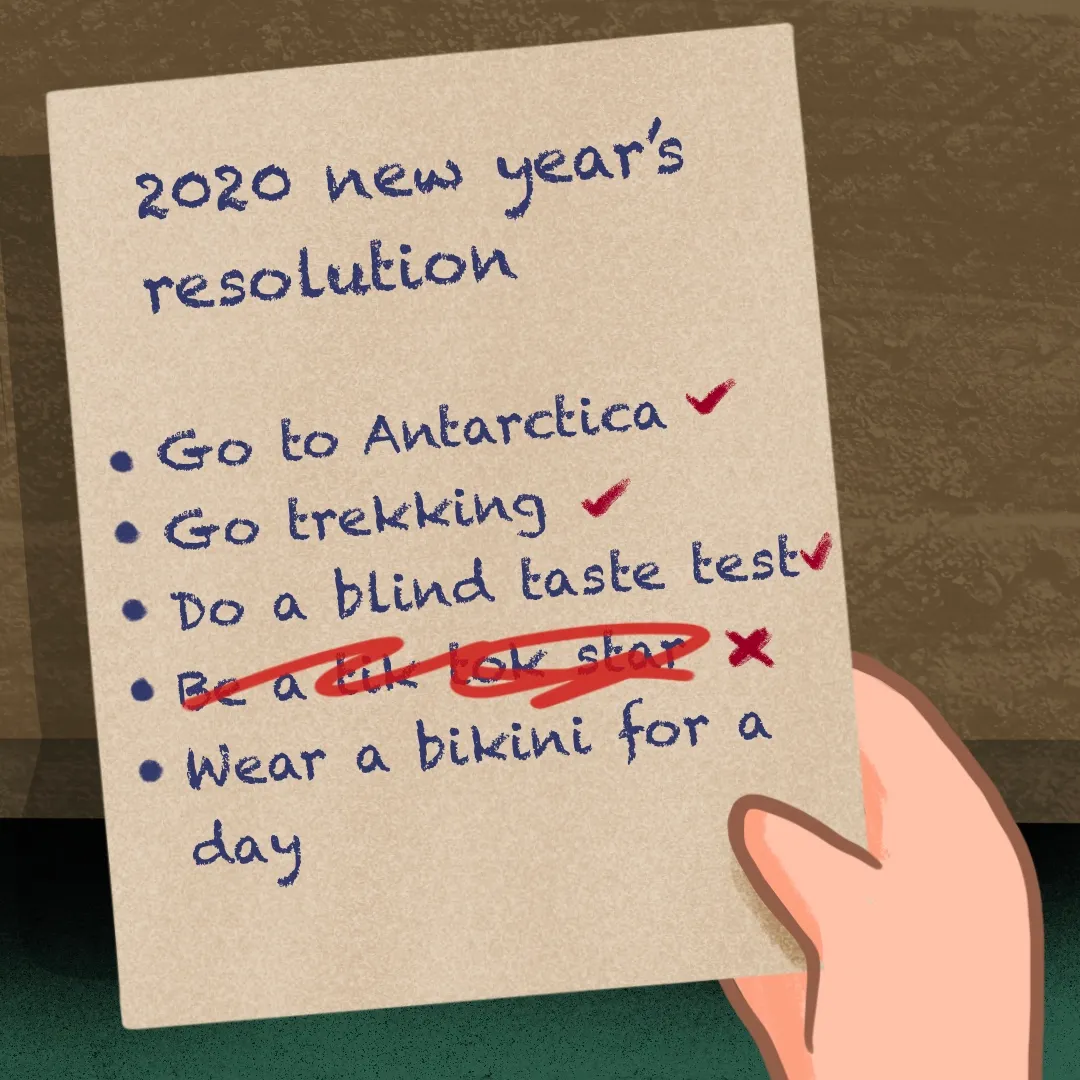 2020 new year's
resolution
• Go to Antarctica ✓
• Go trekking ✓
• Do a blind taste test ✓
• Be a tik tok star ✗
• Wear a bikini for a
day